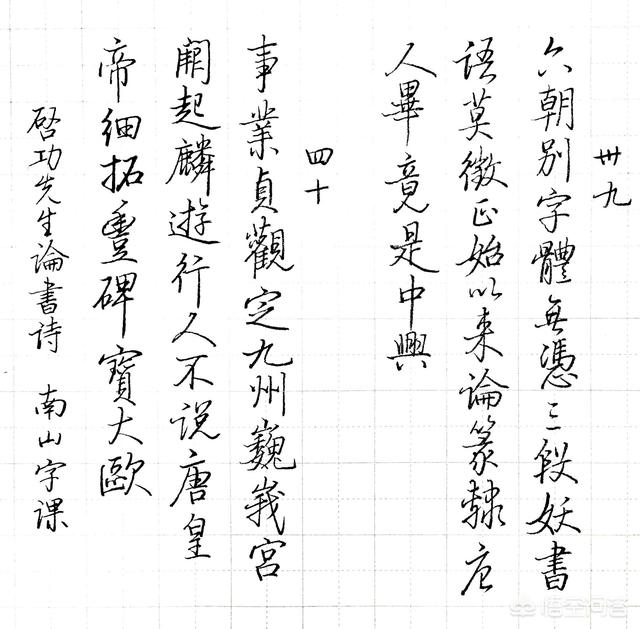 卅九
六朝别字體無憑三段妖書
語莫徵正始以来論篆隸唐
人畢竟是中興
四十
事業貞觀定九州巍峩宫
闕起麟遊行人不说唐皇
帝细拓豐碑寶大歐
啓功先生論書诗 南山字课
悟空问答